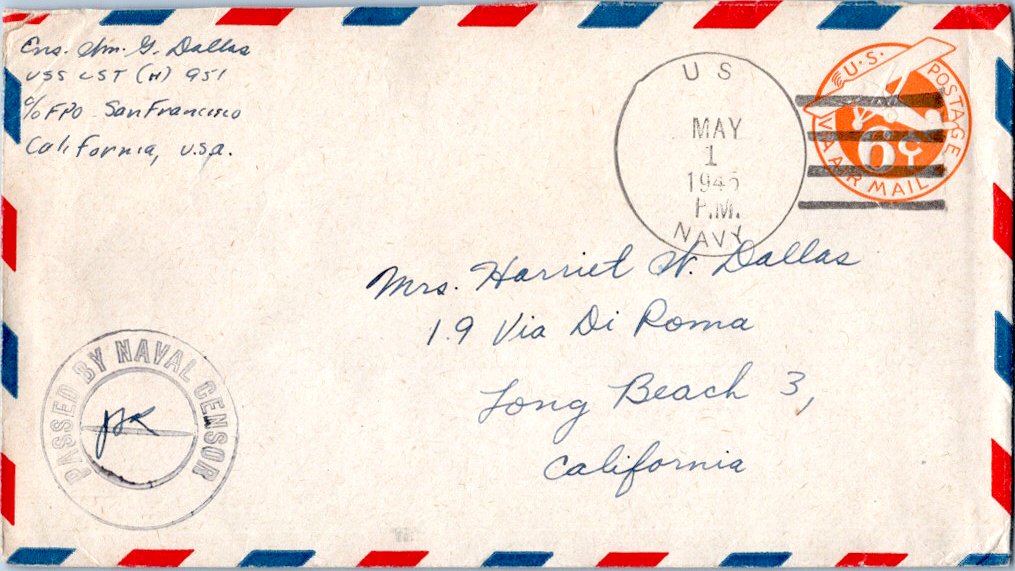 Ens. Wm. G. Dallas
USS LST (H) 951
c/o FPO San Francisco
California, U.S.A.
U S
MAY
1
1945
P.M.
NAVY
U.S. POSTAGE
6¢
VIA AIR MAIL
Mrs. Harriet W. Dallas
19 Via Di Roma
Long Beach 3,
California
PASSED BY NAVAL CENSOR